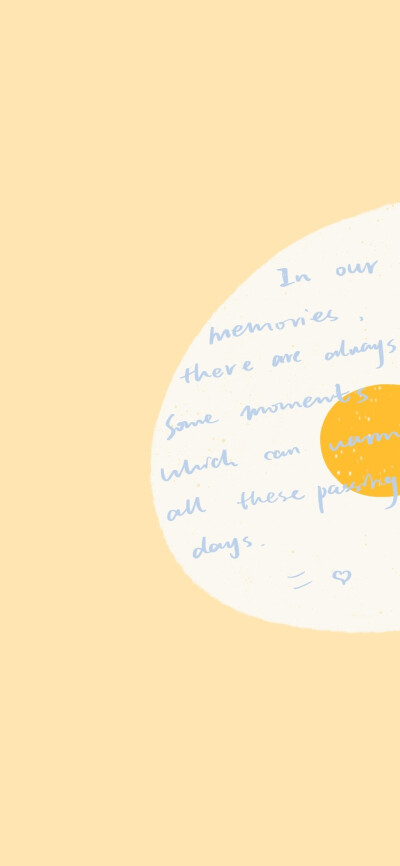 In our
memories ,
there are always
Some moments
which can warm
all these passing
days.